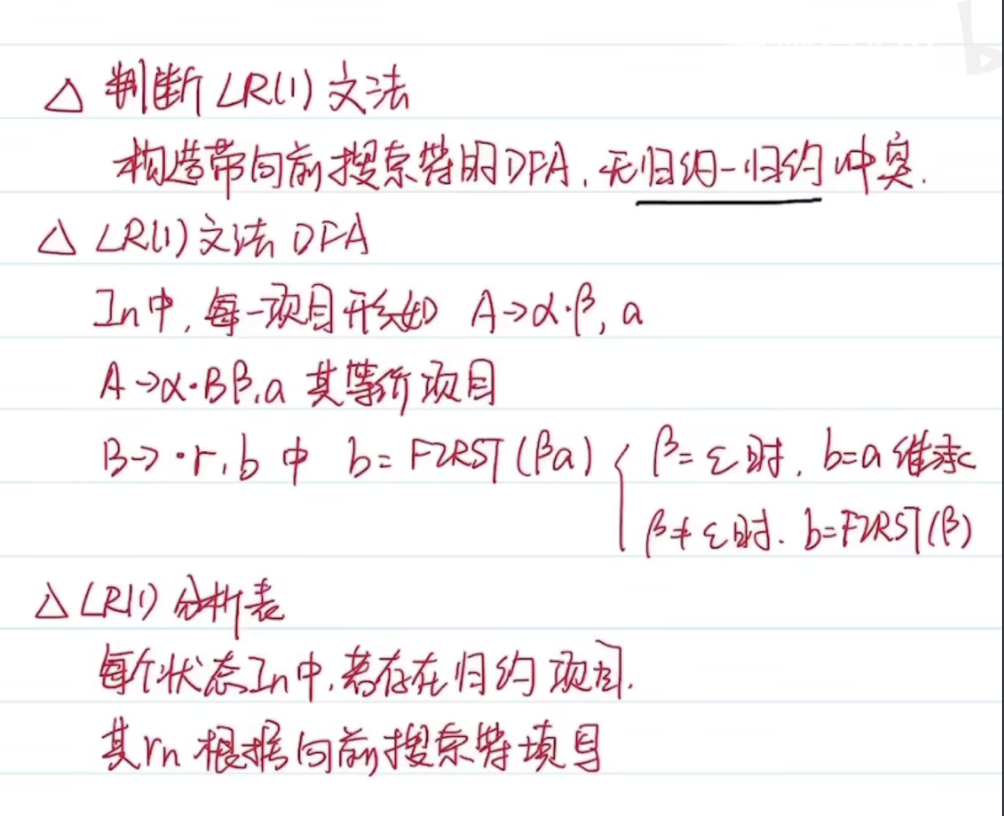 △ 判断LR(1)文法
构造带向前搜索符的DFA,无归约-归约冲突.
△ LR(1)文法DFA
In中,每一项目形如 A→α·β, a
A→α·Bβ,a 其等价项目
B→·r,b中 b=FIRST(βa) { β=ε时, b=a继承
β≠ε时. b=FIRST(β)
△ LR(1)分析表
每个状态In中,若存在归约项目.
其rn根据向前搜索符填写